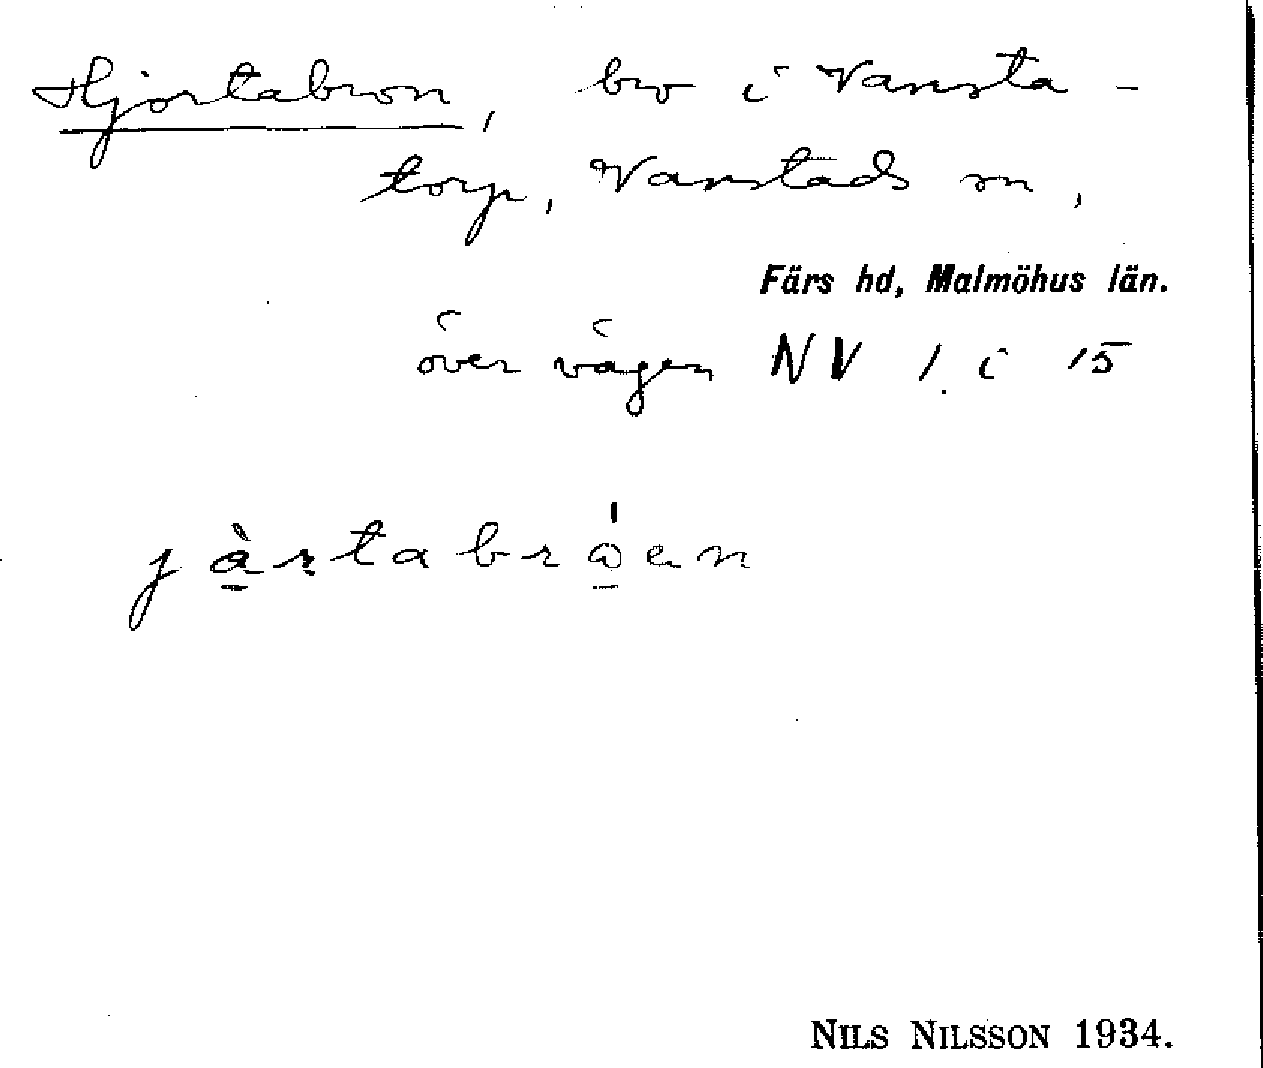 Hjortabron, bro i Vansta-
torp, Vanstads sn,
Färs hd, Malmöhus län.
över vägen NV 1. i 15
jàrtabrωen
NILS NILSSON 1934.